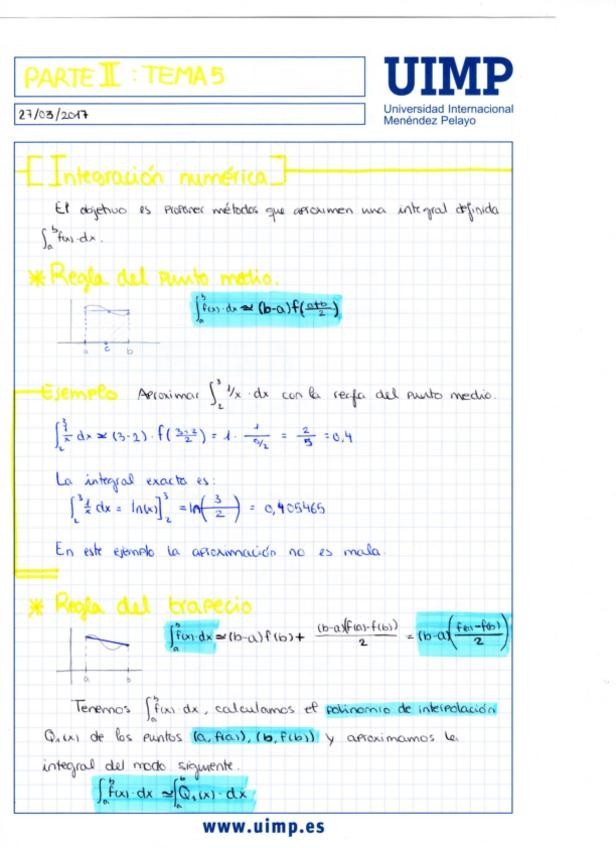 PARTE II : TEMA 5
UIMP
27/03/2017
Universidad Internacional
Menéndez Pelayo
[Integración numérica]
El objetivo es proponer métodos que aproximen una integral definida
∫ₐᵇ f(x)·dx.
* Regla del punto medio.
∫ₐᵇ f(x)·dx ≃ (b-a)f((a+b)/2)
a c b
Ejemplo Aproximar ∫₂³ 1/x · dx con la regla del punto medio.
∫₂³ 1/x dx ≃ (3-2)·f((3-2)/2) = 1 · 1/(5/2) = 2/5 = 0,4
La integral exacta es:
∫₂³ 1/x dx = ln(x)]₂³ = ln(3/2) = 0,405465
En este ejemplo la aproximación no es mala.
* Regla del trapecio
∫ₐᵇ f(x)·dx ≃ (b-a)f(b) + (b-a)(f(a)-f(b))/2 = (b-a)((f(a)-f(b))/2)
a b
Tenemos ∫ₐᵇ f(x)·dx, calculamos el polinomio de interpolación
Q₁(x) de los puntos (a, f(a)), (b, f(b)) y aproximamos la
integral del modo siguiente.
∫ₐᵇ f(x)·dx ≃ ∫ₐᵇ Q₁(x)·dx
www.uimp.es